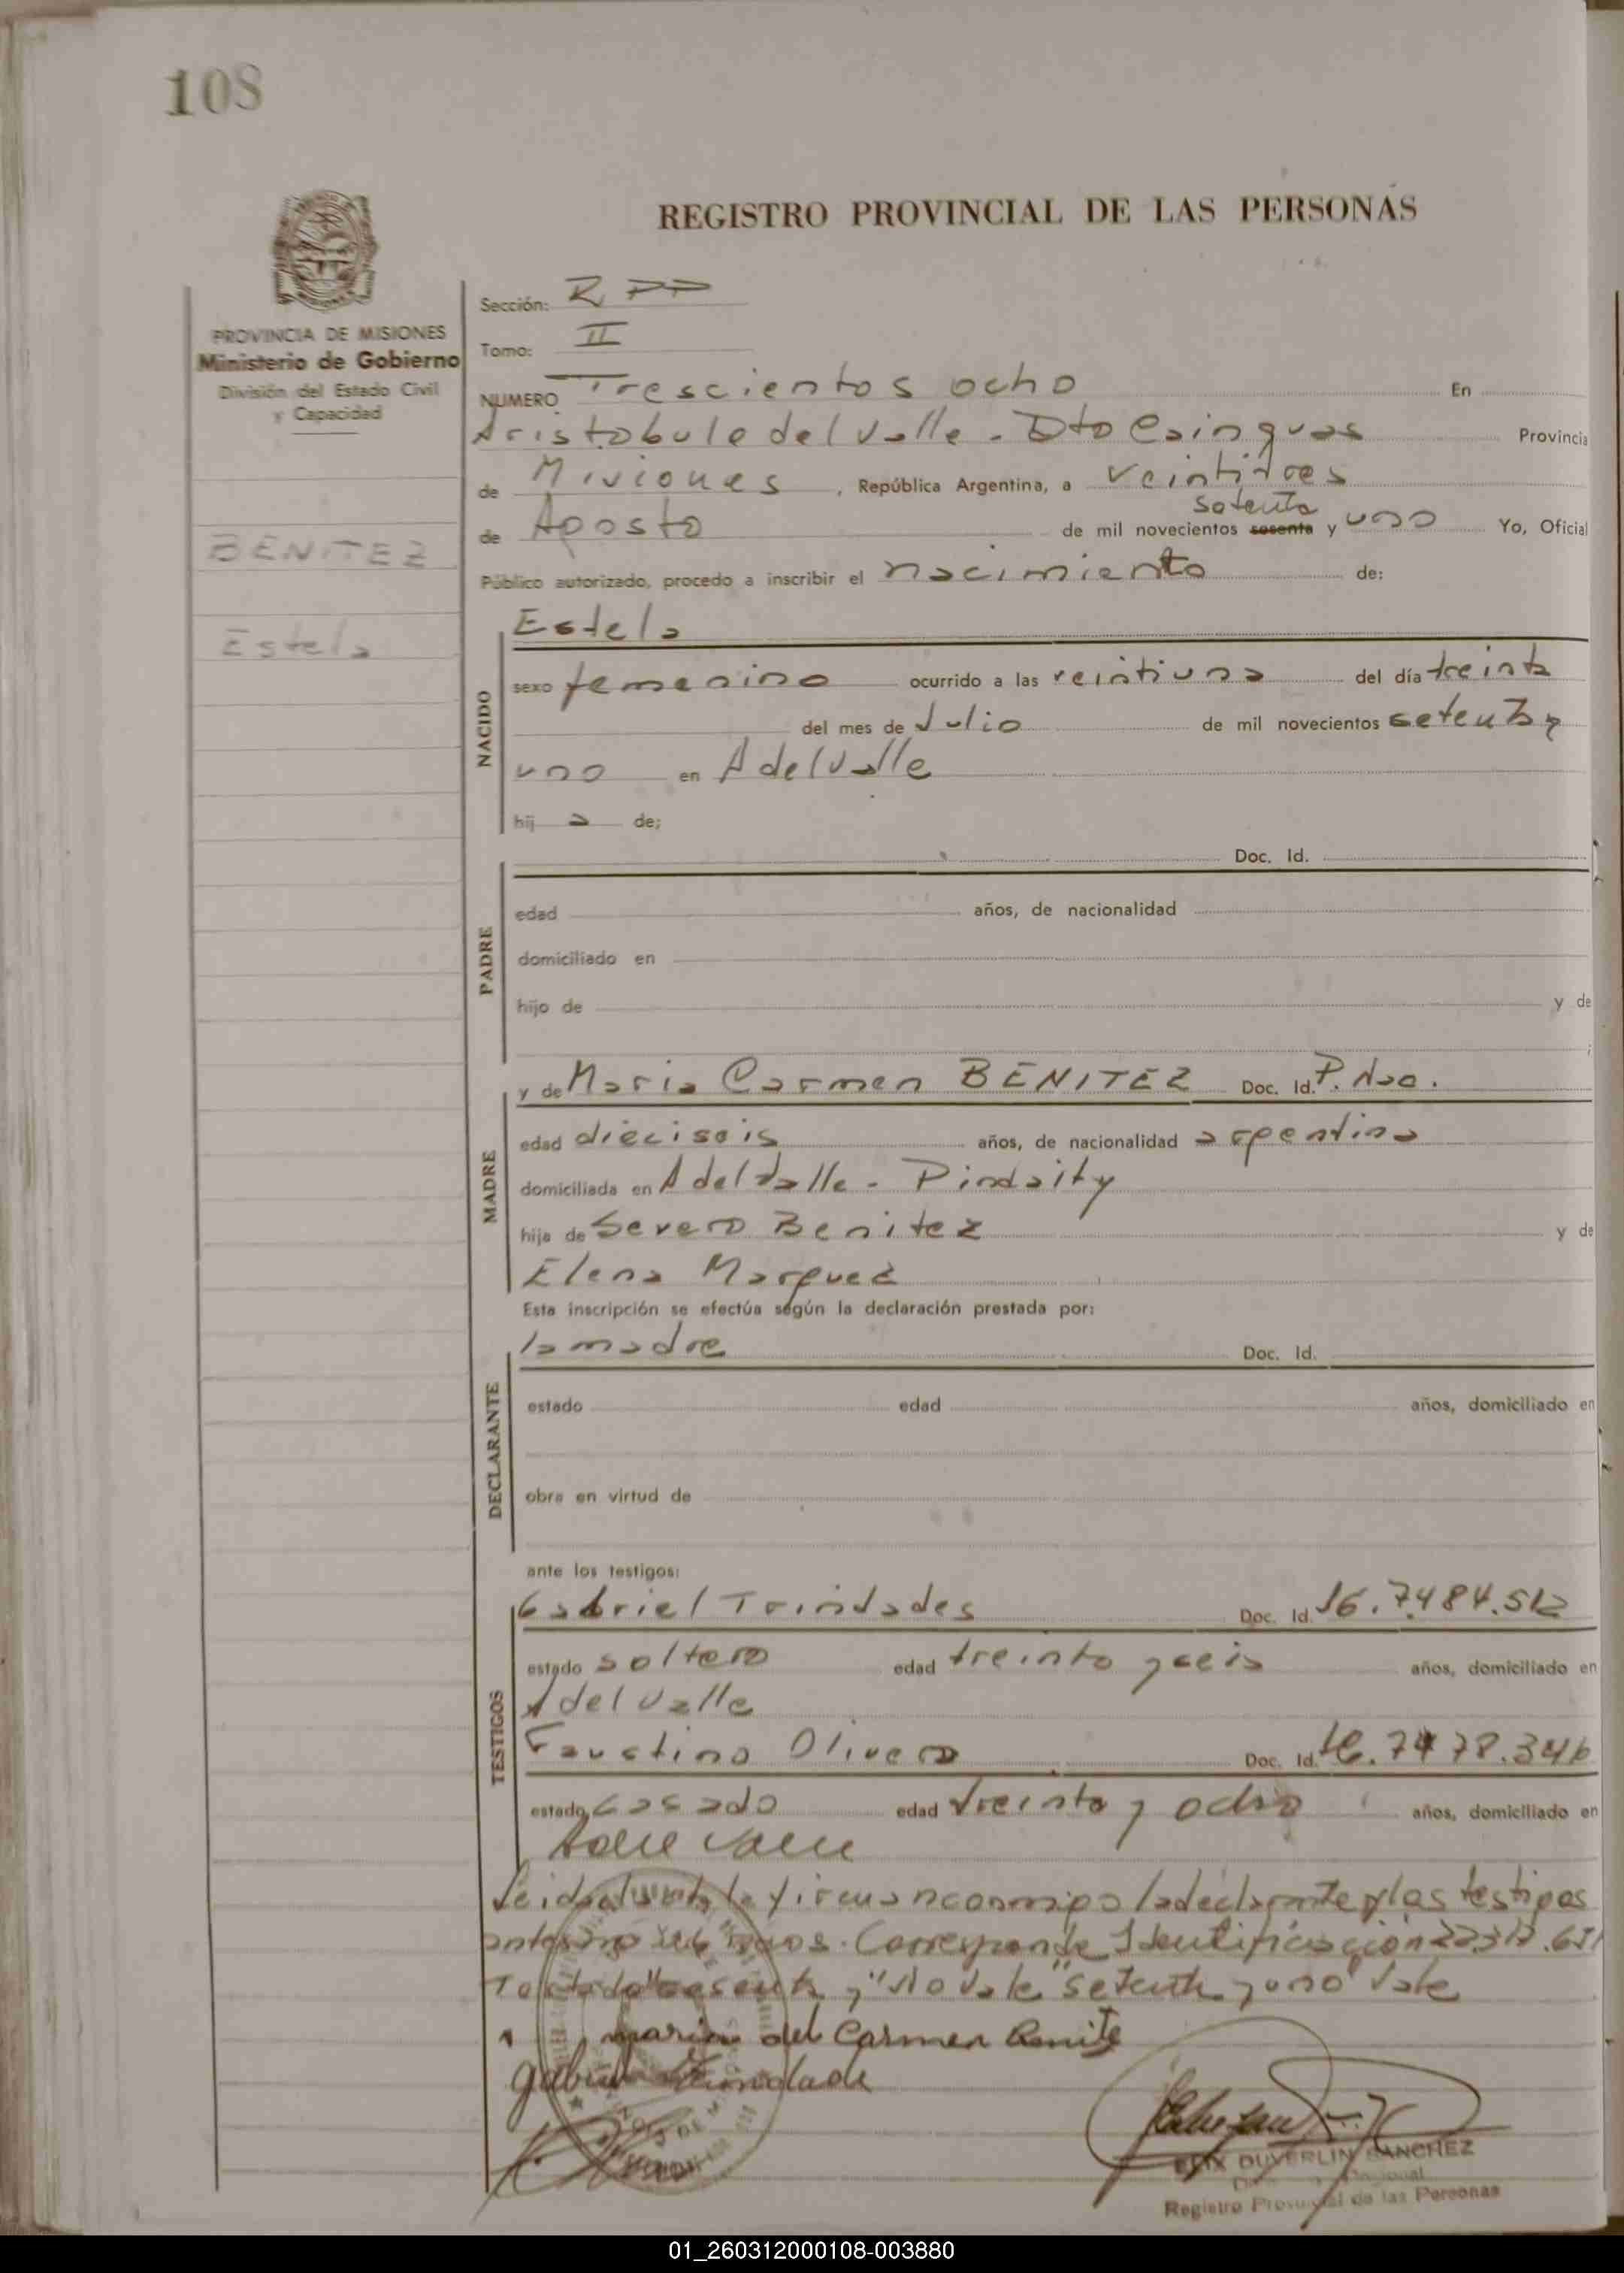 108
REGISTRO PROVINCIAL DE LAS PERSONAS
PROVINCIA DE MISIONES
Ministerio de Gobierno
División del Estado Civil
y Capacidad
BENITEZ
Estela
Sección: RPP
Tomo: II
NUMERO Trescientos ocho En
Aristobulo del Valle - Dto Cainguas Provincia
de Misiones, República Argentina, a veintitres
setenta
de Agosto de mil novecientos sesenta y uno Yo, Oficial
Público autorizado, procedo a inscribir el nacimiento de:
NACIDO
Estela
sexo femenino ocurrido a las veintiuna del día treinta
del mes de Julio de mil novecientos setenta y
uno en A del Valle
hij a de;
PADRE
Doc. Id.
edad años, de nacionalidad
domiciliado en
hijo de y de
MADRE
y de Maria Carmen BENITEZ Doc. Id. P. Nac.
edad dieciseis años, de nacionalidad argentina
domiciliada en A del Valle - Pindaity
hija de Severo Benitez y de
Elena Marquez
Esta inscripción se efectúa según la declaración prestada por:
DECLARANTE
la madre Doc. Id.
estado edad años, domiciliado en
obra en virtud de
ante los testigos:
TESTIGOS
Gabriel Trindades Doc. Id. 7.484.512
estado soltero edad treinta y seis años, domiciliado en
A del Valle
Faustino Olivera Doc. Id.
estado casado edad treinta y ocho años, domiciliado en
A del Valle
Leida el acta la firman conmigo la declarante y los testigos
Corresponde Identificación
Testado "sesenta y" No Vale "setenta y uno" Vale
maria del Carmen Benite
gabriel Trindade
FELIX DUVERLIN SANCHEZ
Registro Provincial de las Personas
01_260312000108-003880